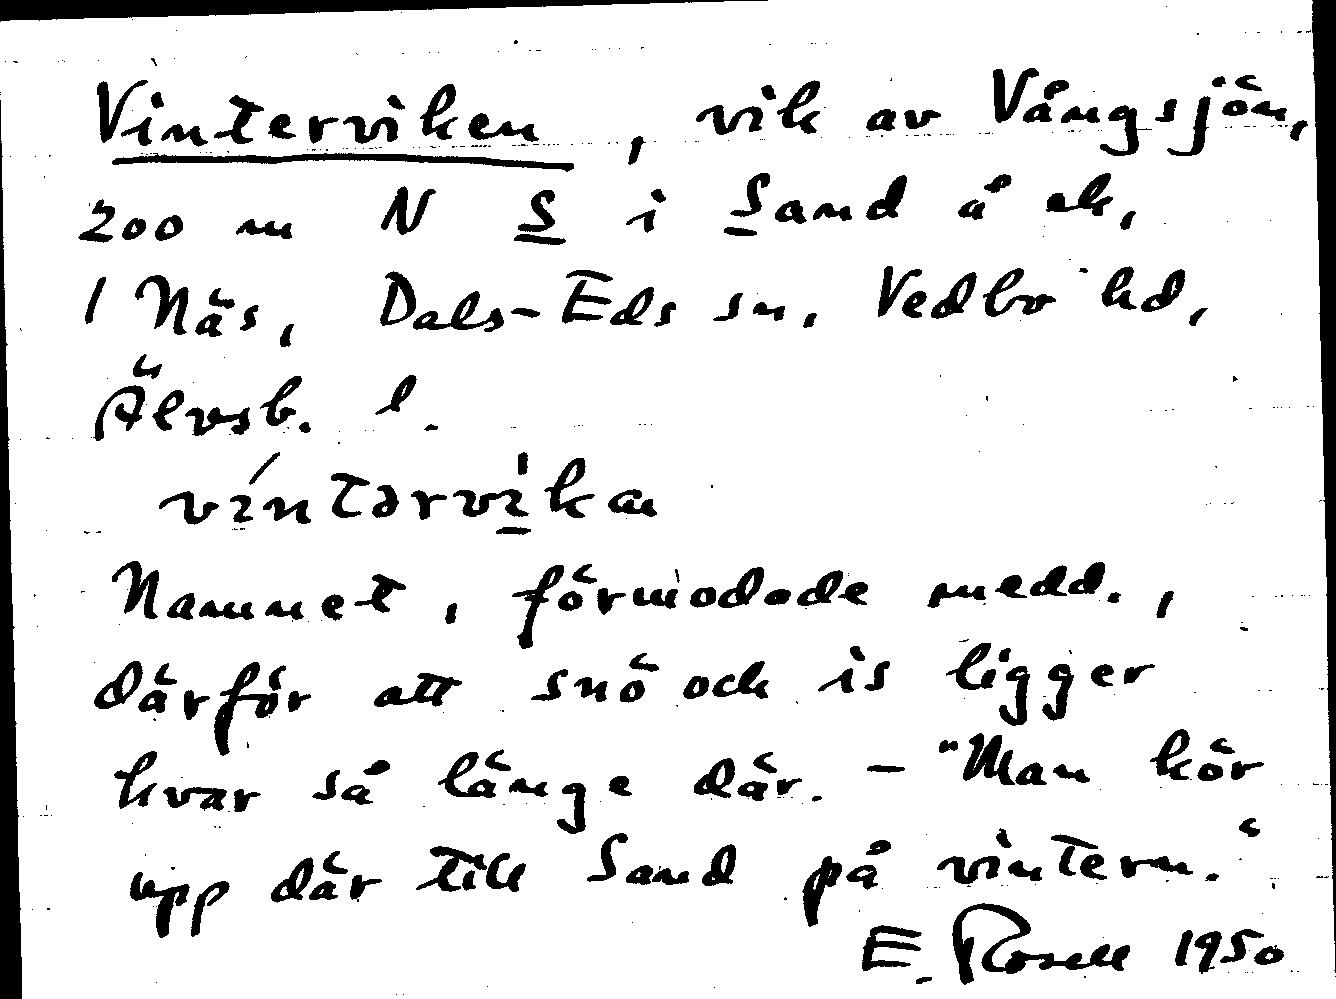 Vinterviken, vik av Vångsjön,
200 m N S i Sand å ek,
1 Näs, Dals-Eds sn, Vedbo hd,
Älvsb. l.
víntərvi̱̍ka
Namnet, förmodade medd.,
därför att snö och is ligger
kvar så länge där. - "Man kör
upp där till Sand på vintern."
E. Rosell 1950